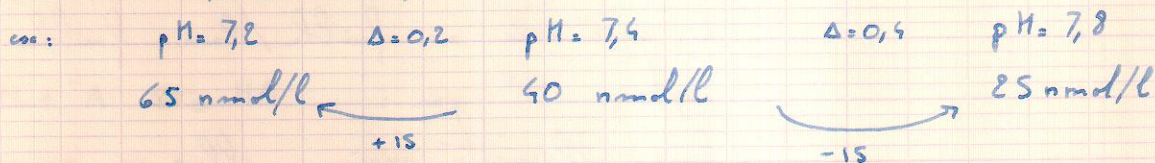 ex: pH= 7,2 Δ=0,2 pH= 7,4 Δ=0,4 pH= 7,8
65 nmol/l 40 nmol/l 25 nmol/l
+15 -15